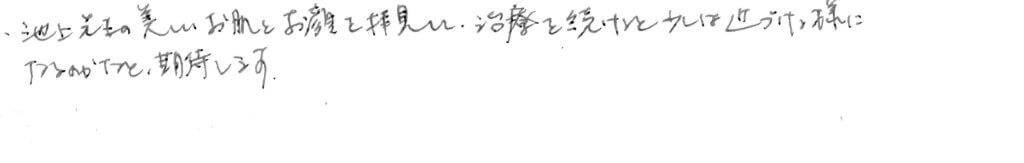 ・池上先生の美しいお肌とお顔を拝見し、治療を続けると少しは近づける様に
なるのかなと、期待します。